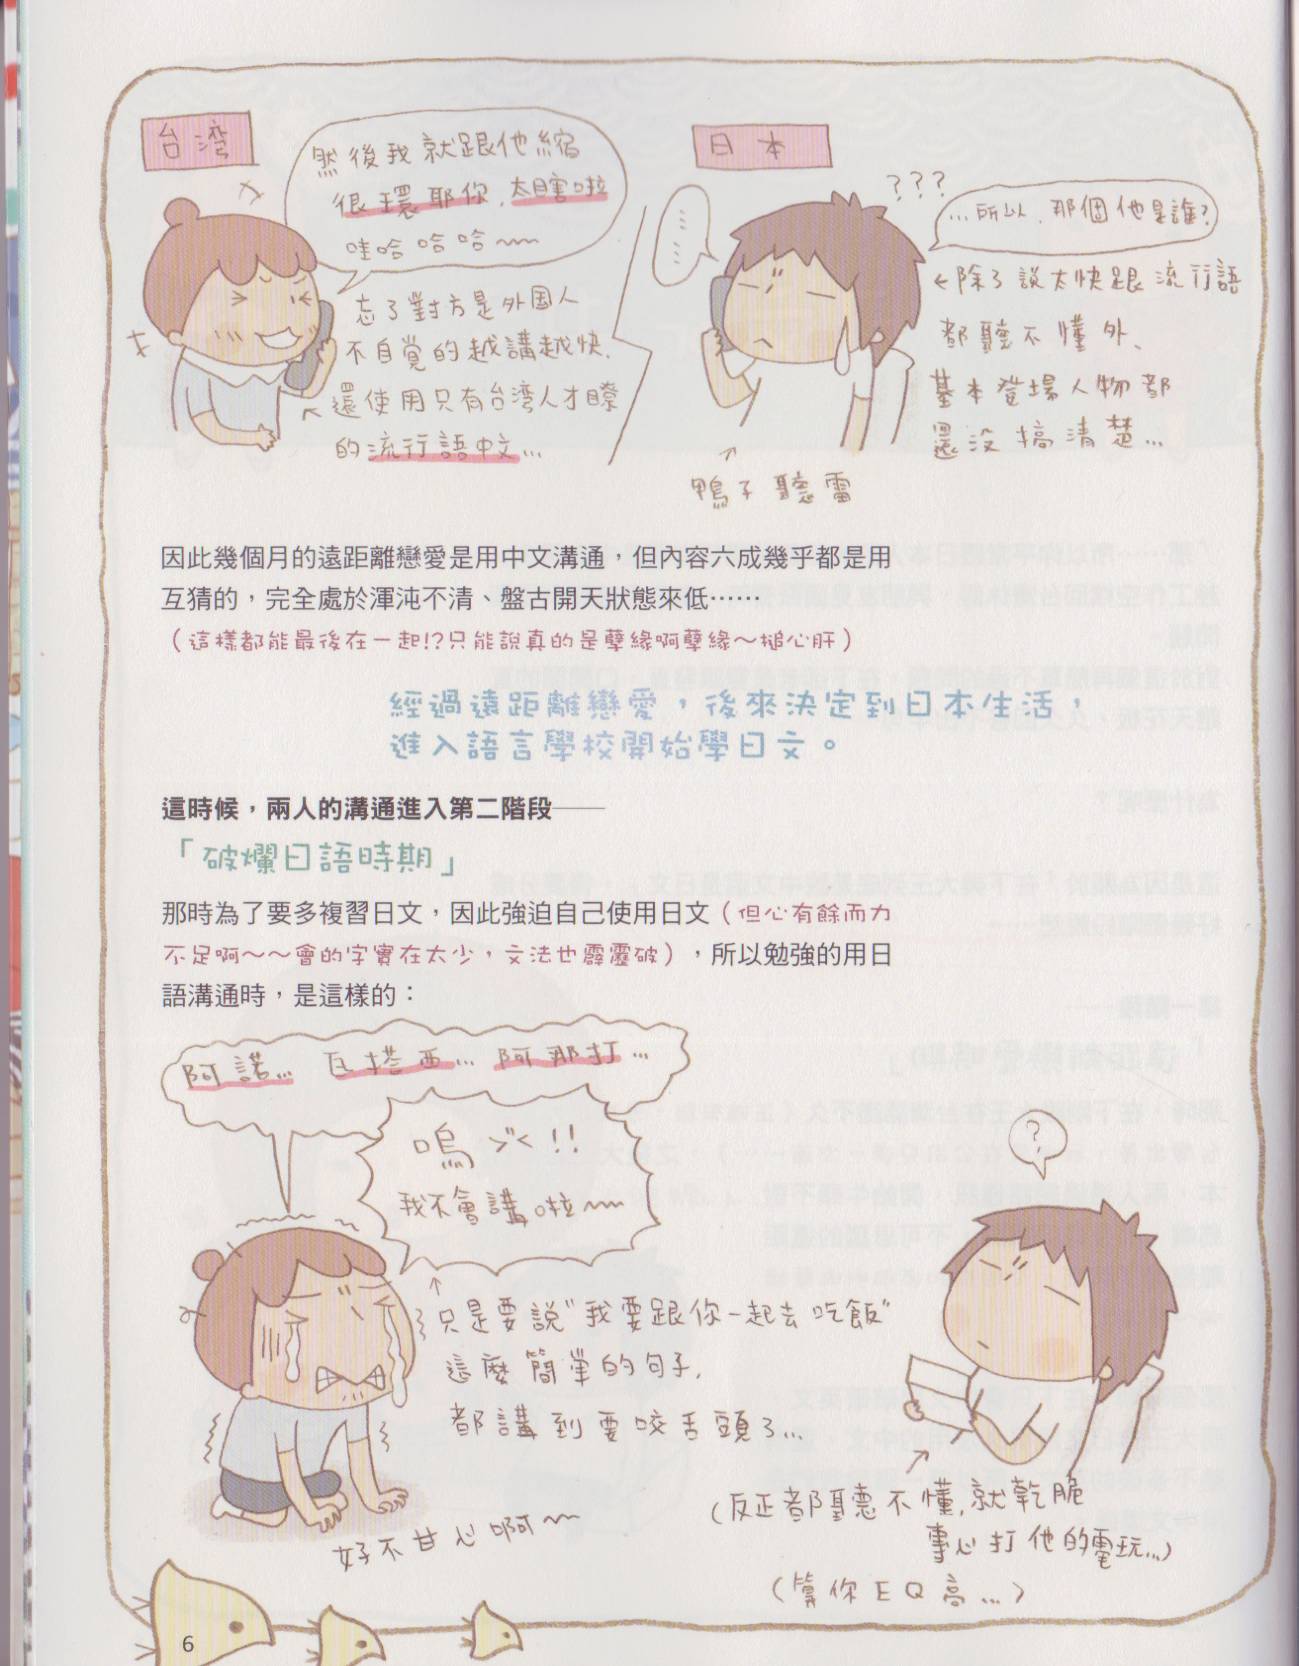 台湾
然後我就跟他縮
很環耶你,太瞎啦
哇哈哈哈~~
忘了對方是外国人
不自覚的越講越快,
還使用只有台湾人才瞭
的流行語中文…
日本
……
???
…所以,那個他是誰?
←除了說太快跟流行語
都聽不懂外、
基本登場人物都
還没搞清楚…
鴨子聽雷
因此幾個月的遠距離戀愛是用中文溝通,但內容六成幾乎都是用
互猜的,完全處於渾沌不清、盤古開天狀態來低……
(這樣都能最後在一起!?只能說真的是孽緣啊孽緣~搥心肝)
經過遠距離戀愛,後來決定到日本生活,
進入語言學校開始學日文。
這時候,兩人的溝通進入第二階段——
「破爛日語時期」
那時為了要多複習日文,因此強迫自己使用日文(但心有餘而力
不足啊~~會的字實在太少,文法也霹靂破),所以勉強的用日
語溝通時,是這樣的:
阿諾… 瓦塔西… 阿那打…
嗚ㄍㄑ!!
我不會講啦~~
只是要說"我要跟你一起去吃飯"
這麼簡単的句子,
都講到要咬舌頭了…
好不甘心啊~~
?
(反正都聽不懂,就乾脆
專心打他的電玩…)
(算你EQ高…)
6